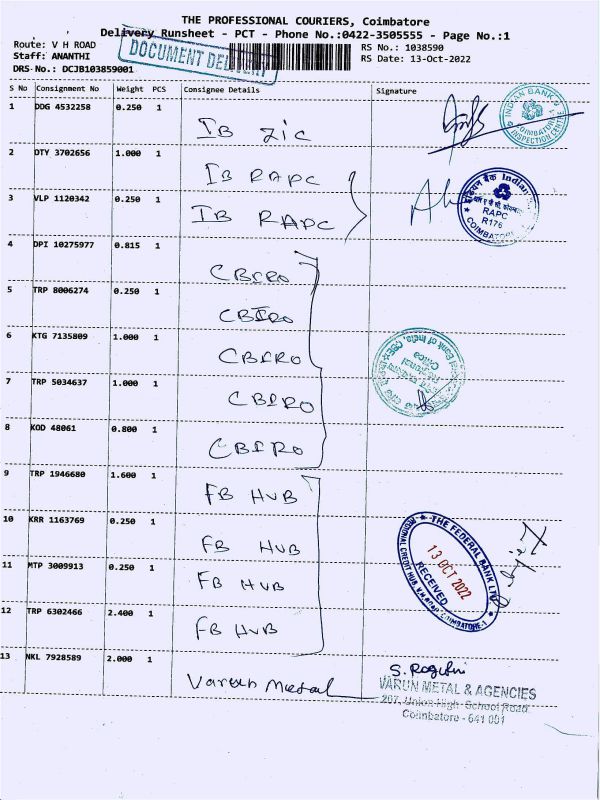 THE PROFESSIONAL COURIERS, Coimbatore
Delivery Runsheet - PCT - Phone No.:0422-3505555 - Page No.:1
Route: V H ROAD
Staff: ANANTHI
DRS No.: DCJB103859001
DOCUMENT DELIVERY
RS No.: 1038590
RS Date: 13-Oct-2022
S No Consignment No Weight PCS Consignee Details Signature
1 DDG 4532258 0.250 1
IB ZIC
INDIAN BANK
COIMBATORE
INSPECTION CENTRE
2 DTY 3702656 1.000 1
IB RAPC
3 VLP 1120342 0.250 1
IB RAPC
Indian
RAPC
R176
COIMBATORE
4 DPI 10275977 0.815 1
CBIRO
5 TRP 8006274 0.250 1
CBIRO
6 KTG 7135809 1.000 1
CBIRO
Bank of India,
Regional
Office
7 TRP 5034637 1.000 1
CBIRO
8 KOD 48061 0.800 1
CBIRO
9 TRP 1946680 1.600 1
FB HUB
10 KRR 1163769 0.250 1
FB HUB
THE FEDERAL BANK LTD
13 OCT 2022
RECEIVED
CREDIT HUB
COIMBATORE-1
11 MTP 3009913 0.250 1
FB HUB
12 TRP 6302466 2.400 1
FB HUB
13 NKL 7928589 2.000 1
Varun Metal
VARUN METAL & AGENCIES
207, Union High School Road
Coimbatore - 641 001